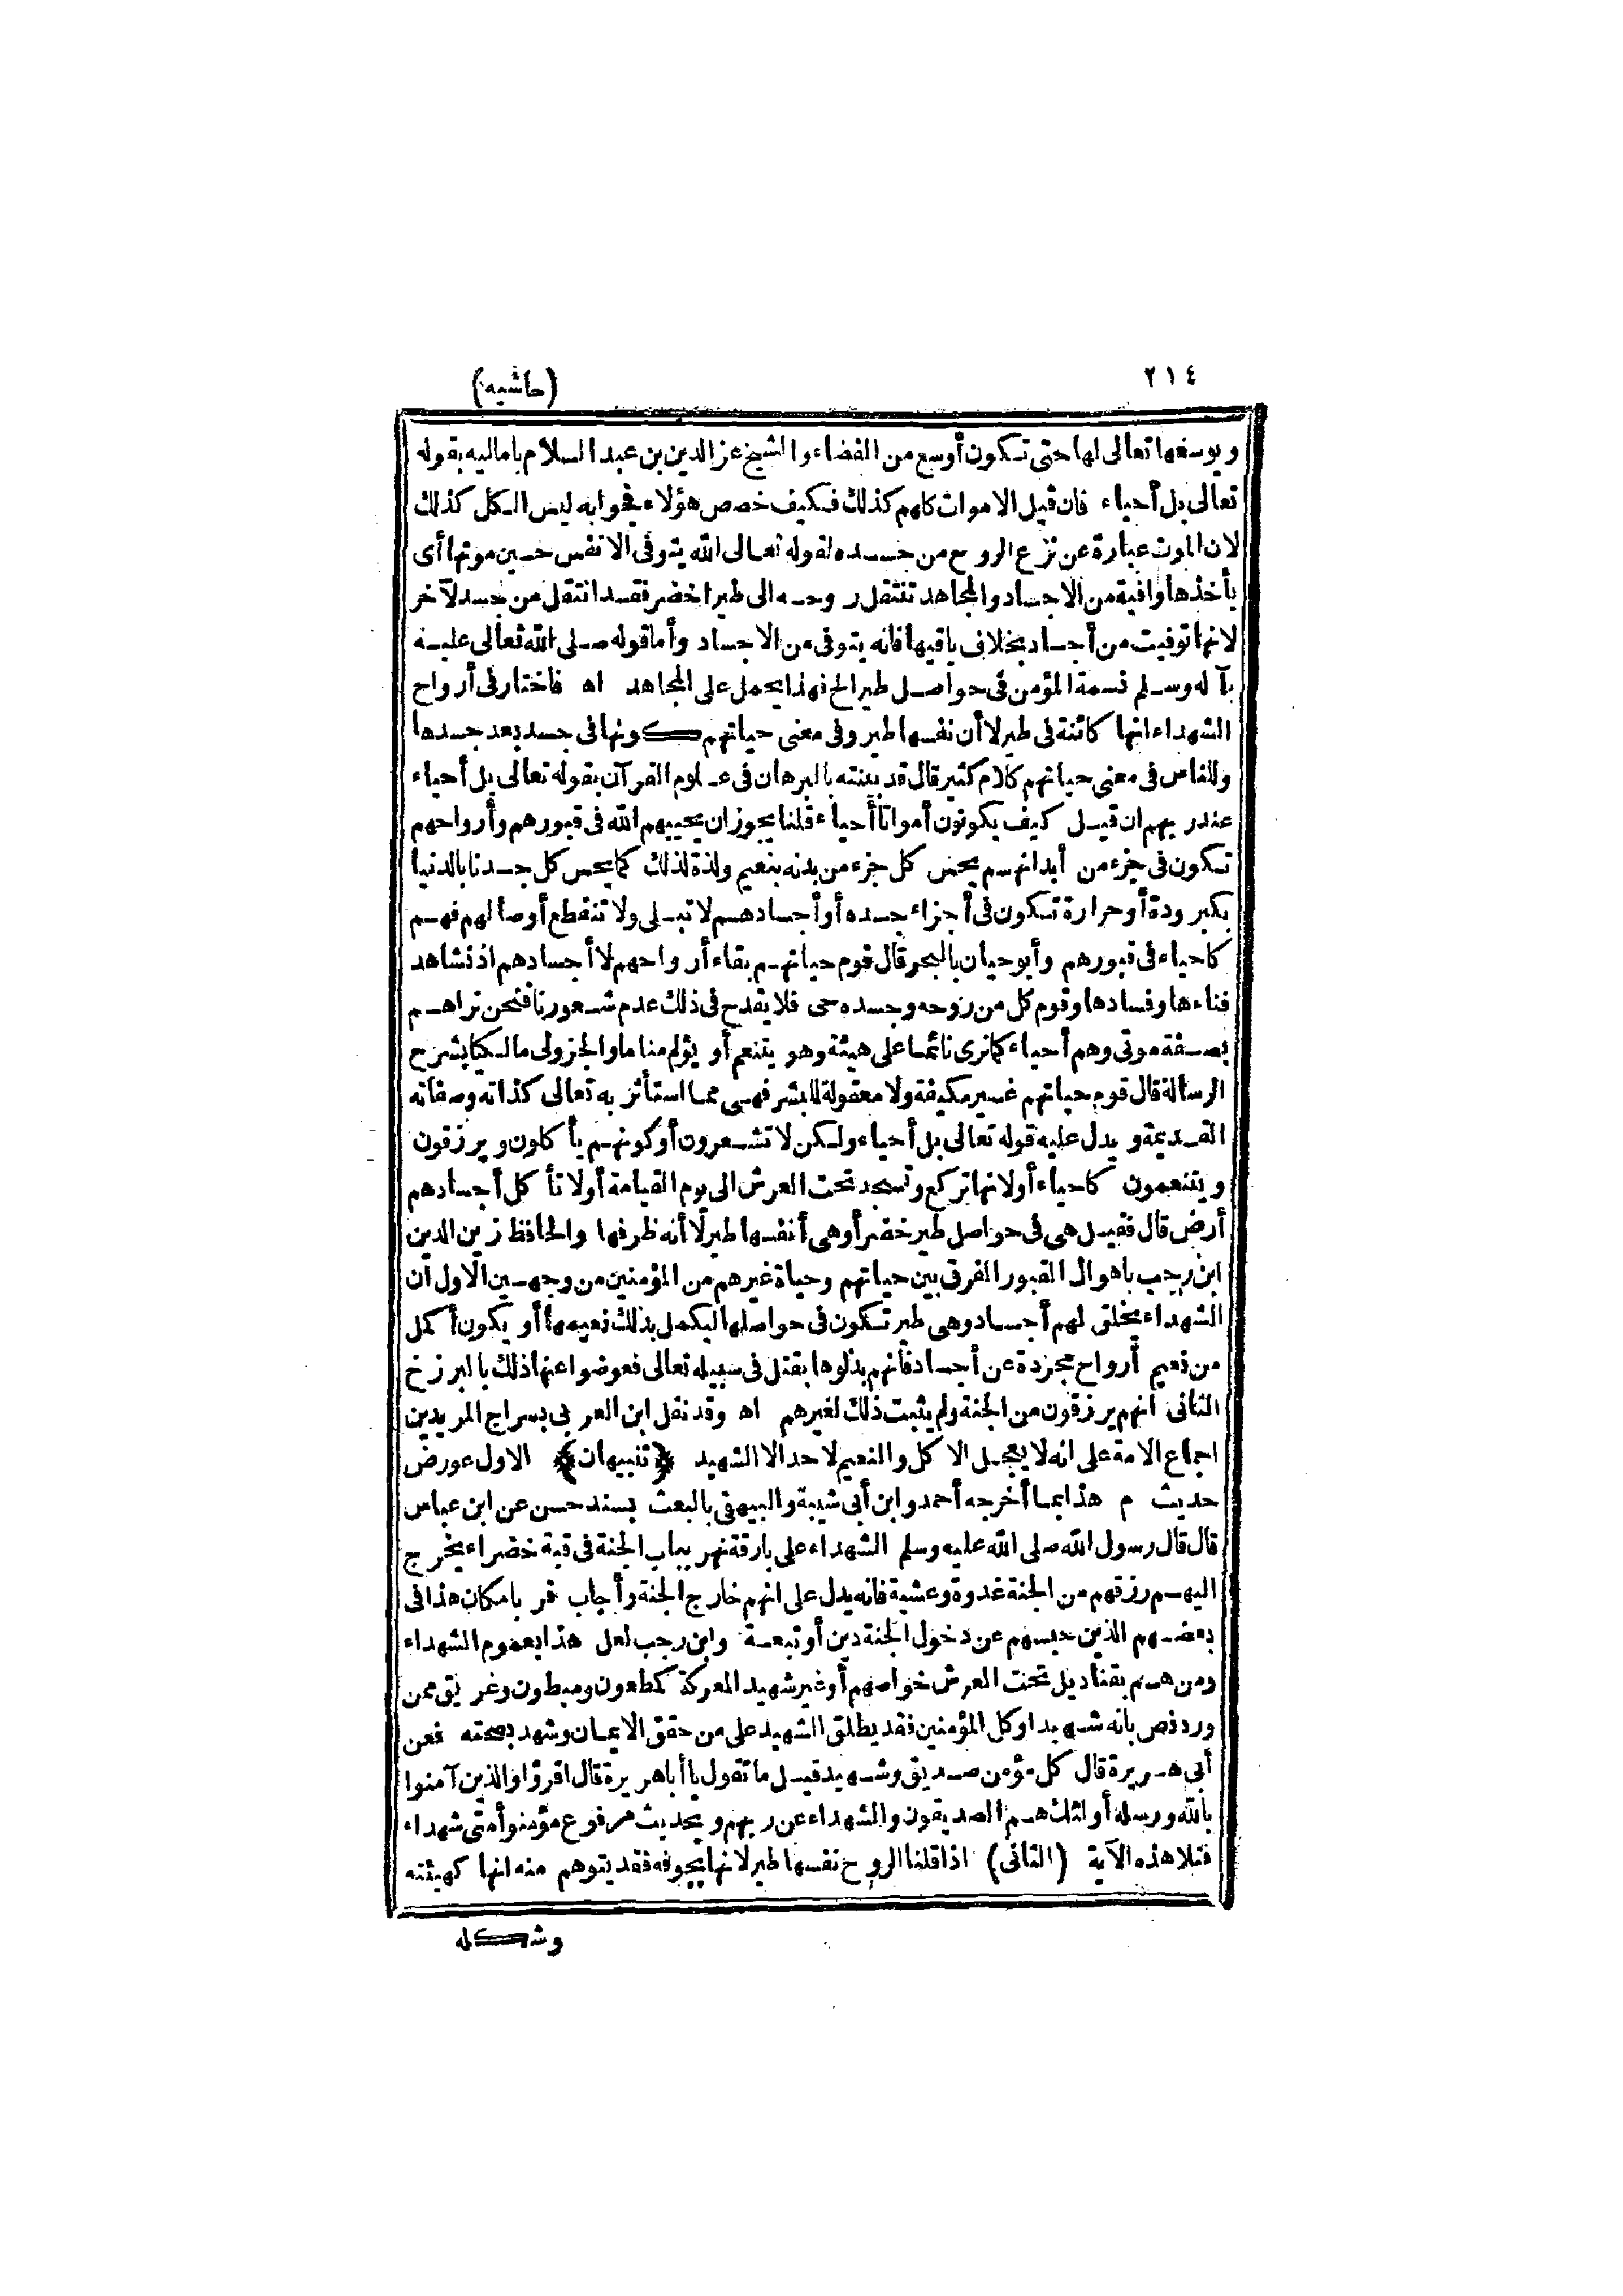 ٢١٤
(حاشيه)
ويوسعها تعالى لها حتى تكون أوسع من الفضاء والشيخ عز الدين بن عبد السلام باماليه بقوله
تعالى بل أحياء فان قيل الاموات كلهم كذلك فكيف خصص هؤلاء فجوابه ليس الكل كذلك
لان الموت عبارة عن نزع الروح من جسده لقوله تعالى الله يتوفى الانفس حين موتها أى
يأخذها وافية من الاجساد والمجاهد تنتقل روحه الى طير اخضر فقد انتقل من جسد لآخر
لانها توفيت من أجساد بخلاف باقيها فانه يتوفى من الاجساد وأما قوله صلى الله تعالى عليه
بآله وسلم نسمة المؤمن فى حواصل طير الخ فهذا يحمل على المجاهد اه فاختار فى أرواح
الشهداء انها كائنة فى طير لا أن نفسها طير وفى معنى حياتهم كونها فى جسد بعد جسدها
وللناس فى معنى حياتهم كلام كثير قال قد بينته بالبرهان فى علوم القرآن بقوله تعالى بل أحياء
عند ربهم ان قيل كيف يكونون أمواتا أحياء قلنا يجوز ان يحييهم الله فى قبورهم وأرواحهم
تكون فى جزء من أبدانهم يحس كل جزء من بدنه بنعيم ولذة لذلك كما يحس كل جسدنا بالدنيا
بكبرودة أو حرارة تكون فى أجزاء جسده أو أجسادهم لا تبلى ولا تنقطع أوصالهم فهم
كاحياء فى قبورهم وأبو حيان بالبحر قال قوم حياتهم بقاء أرواحهم لا أجسادهم اذ نشاهد
فناءها وفسادها وقوم كل من روحه وجسده حى فلا يقدح فى ذلك عدم شعورنا فنحن نراهم
بصفة موتى وهم أحياء كما نرى نائما على هيئة وهو يتنعم أو يؤلم مناما والجزولى مالكيا بشرح
الرسالة قال قوم حياتهم غير مكيفة ولا معقولة للبشر فهى مما استأثر به تعالى كذاته وصفاته
القديمة ويدل عليه قوله تعالى بل أحياء ولكن لا تشعرون أو كونهم يأكلون ويرزقون
ويتنعمون كاحياء أو لانها تركع وتسجد تحت العرش الى يوم القيامة أو لا تأكل أجسادهم
أرض قال فقيل هى فى حواصل طير خضر أو هى أنفسها طير لا أنه ظرفها والحافظ زين الدين
ابن رجب باهوال القبور الفرق بين حياتهم وحياة غيرهم من المؤمنين من وجهين الاول أن
الشهداء يخلق لهم أجساد وهى طير تكون فى حواصلها ليكمل بذلك نعيمها أو يكون أكمل
من نعيم أرواح مجردة عن أجساد فانهم بذلوها بقتل فى سبيله تعالى فعوضوا عنها ذلك بالبرزخ
الثانى انهم يرزقون من الجنة ولم يثبت ذلك لغيرهم اه وقد نقل ابن العربى بسراج المريدين
اجماع الامة على انه لا يعجل الاكل والنعيم لاحد الا الشهيد ﴿تنبيهان﴾ الاول عورض
حديث م هذا بما أخرجه أحمد وابن أبى شيبة والبيهقى بالبعث بسند حسن عن ابن عباس
قال قال رسول الله صلى الله عليه وسلم الشهداء على بارقة نهر بباب الجنة فى قبة خضراء يخرج
اليهم رزقهم من الجنة غدوة وعشية فانه يدل على انهم خارج الجنة وأجاب قر بامكان هذا فى
بعضهم الذين حبسهم عن دخول الجنة دين أو تبعة وابن رجب لعل هذا بعموم الشهداء
ومن هم بقناديل تحت العرش خواصهم أو غير شهيد المعركة كمطعون ومبطون وغريق ممن
ورد نص بانه شهيد او كل المؤمنين فقد يطلق الشهيد على من حقق الايمان وشهد بصحته فعن
أبى هريرة قال كل مؤمن صديق وشهيد قيل ما تقول يا أبا هريرة قال اقرؤا والذين آمنوا
بالله ورسله أولئك هم الصديقون والشهداء عن ربهم وبحديث مرفوع مؤمنو أمتى شهداء
فتلا هذه الآية (الثانى) اذا قلنا الروح نفسها طير لا نها بجوفه فقد يتوهم منه انها كهيئته
وشكله